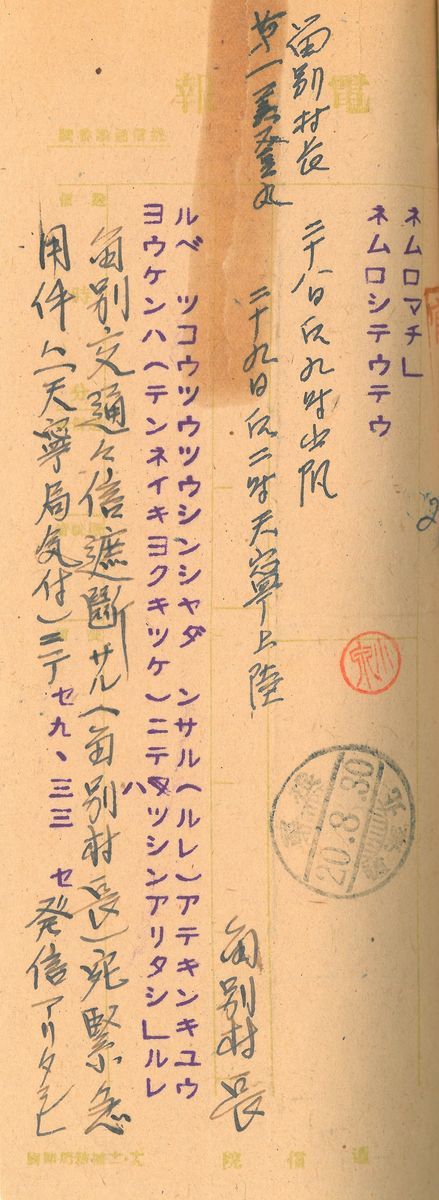 ネムロマチ」
ネムロシテウテウ
留別村長 二十八日后九時出帆
第一 丸 二十九日后二時天寧上陸
留別村長
ルベ ツコウツウツウシンシヤダ ンサル(ルレ)アテキンキユウ
ヨウケンハ(テンネイキヨクキツケ)ニテハツシンアリタシ」ルレ
留別交通々信遮断サル(留別村長)宛緊急
用件ハ(天寧局気付)ニテ 発信アリタシ
セ九、三三 セ
小泉
20.8.30
電 報